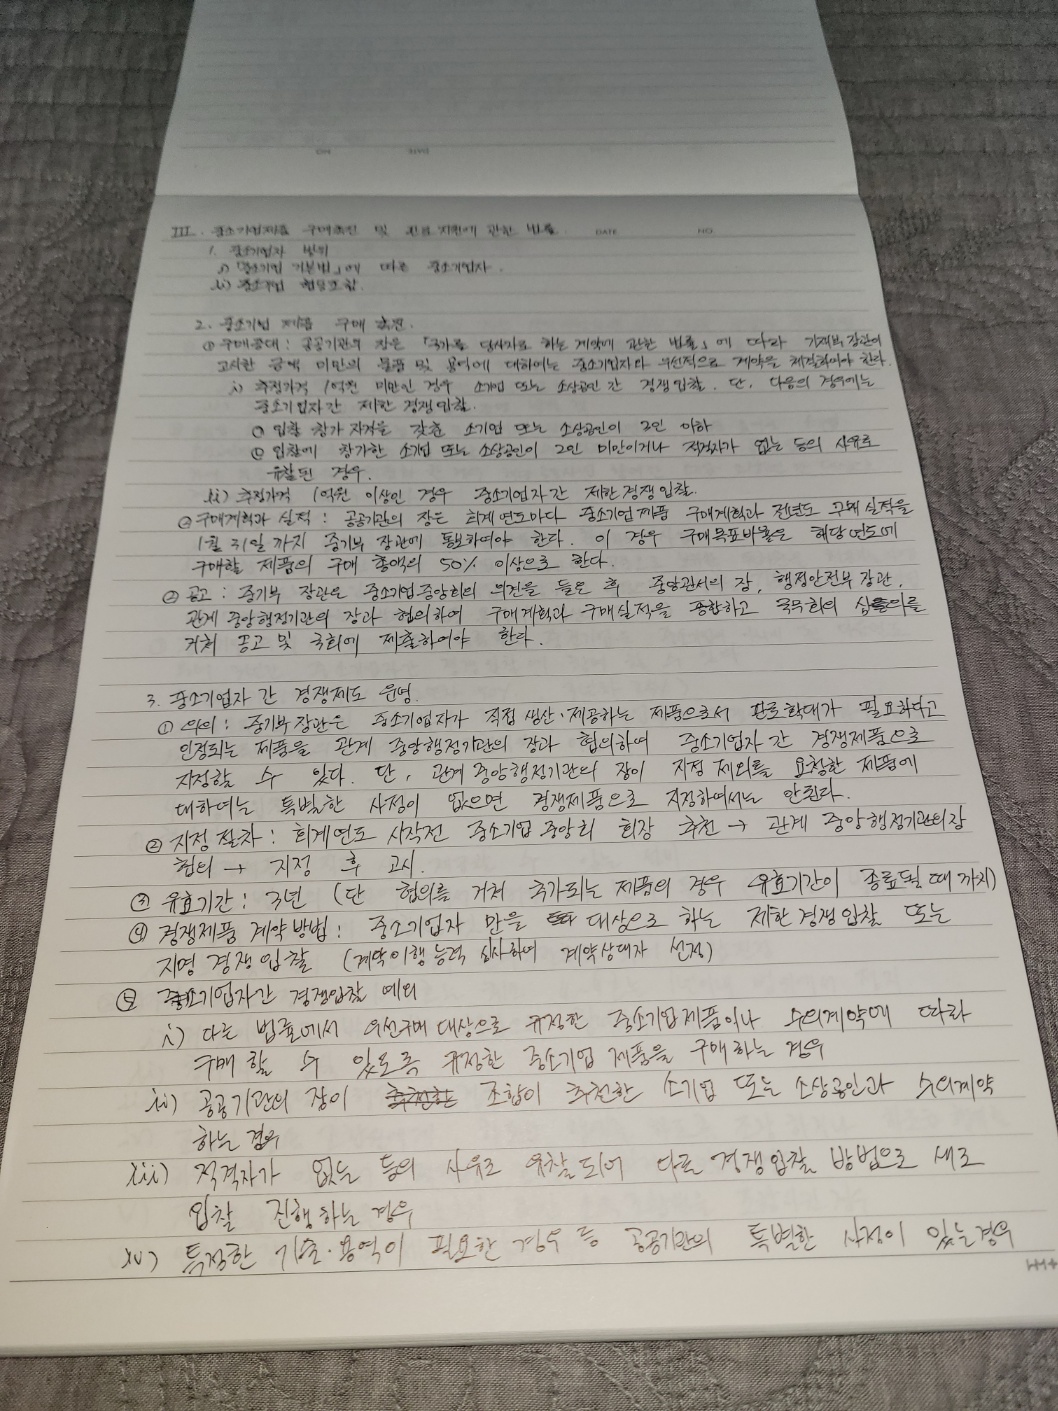 III. 중소기업제품 구매촉진 및 판로지원에 관한 법률 DATE NO.
1. 중소기업자 범위
i) 「중소기업 기본법」에 따른 중소기업자.
ii) 중소기업 협동조합.
2. 중소기업 제품 구매 촉진.
① 구매증대 : 공공기관의 장은 「국가를 당사자로 하는 계약에 관한 법률」에 따라 기재부 장관이
고시한 금액 미만의 물품 및 용역에 대하여는 중소기업자와 우선적으로 계약을 체결하여야 한다.
i) 추정가격 1억원 미만인 경우 소기업 또는 소상공인 간 경쟁입찰. 단, 다음의 경우에는
중소기업자간 제한 경쟁입찰.
㉠ 입찰 참가 자격을 갖춘 소기업 또는 소상공인이 2인 이하
㉡ 입찰에 참가한 소기업 또는 소상공인이 2인 미만이거나 적격자가 없는 등의 사유로
유찰된 경우.
ii) 추정가격 1억원 이상인 경우 중소기업자간 제한경쟁입찰.
② 구매계획과 실적 : 공공기관의 장은 회계연도마다 중소기업제품 구매계획과 전년도 구매실적을
1월 31일 까지 중기부 장관에 통보하여야 한다. 이 경우 구매목표비율은 해당연도에
구매할 제품의 구매 총액의 50% 이상으로 한다.
③ 공고 : 중기부 장관은 중소기업중앙회의 의견을 들은 후 중앙관서의 장, 행정안전부 장관,
관계 중앙행정기관의 장과 협의하여 구매계획과 구매실적을 종합하고 국무회의 심의를
거쳐 공고 및 국회에 제출하여야 한다.
3. 중소기업자 간 경쟁제도 운영.
① 의의 : 중기부 장관은 중소기업자가 직접 생산·제공하는 제품으로서 판로확대가 필요하다고
인정되는 제품을 관계 중앙행정기관의 장과 협의하여 중소기업자 간 경쟁제품으로
지정할 수 있다. 단, 관계 중앙행정기관의 장이 지정 제외를 요청한 제품에
대하여는 특별한 사정이 없으면 경쟁제품으로 지정하여서는 안된다.
② 지정 절차 : 회계연도 시작전 중소기업 중앙회 회장 추천 → 관계 중앙행정기관의장
협의 → 지정 후 고시.
③ 유효기간 : 3년 (단 협의를 거쳐 추가되는 제품의 경우 유효기간이 종료될 때 까지)
④ 경쟁제품 계약 방법 : 중소기업자 만을 대상으로 하는 제한 경쟁입찰 또는
지명 경쟁입찰 (계약이행 능력 심사하여 계약상대자 선정)
⑤ 중소기업자간 경쟁입찰 예외
i) 다른 법률에서 우선구매 대상으로 규정한 중소기업제품이나 수의계약에 따라
구매 할 수 있도록 규정한 중소기업 제품을 구매하는 경우
ii) 공공기관의 장이 조합이 추천한 소기업 또는 소상공인과 수의계약
하는 경우
iii) 적격자가 없는 등의 사유로 유찰되어 다른 경쟁입찰 방법으로 새로
입찰 진행하는 경우
iv) 특정한 기술·용역이 필요한 경우 등 공공기관의 특별한 사정이 있는경우